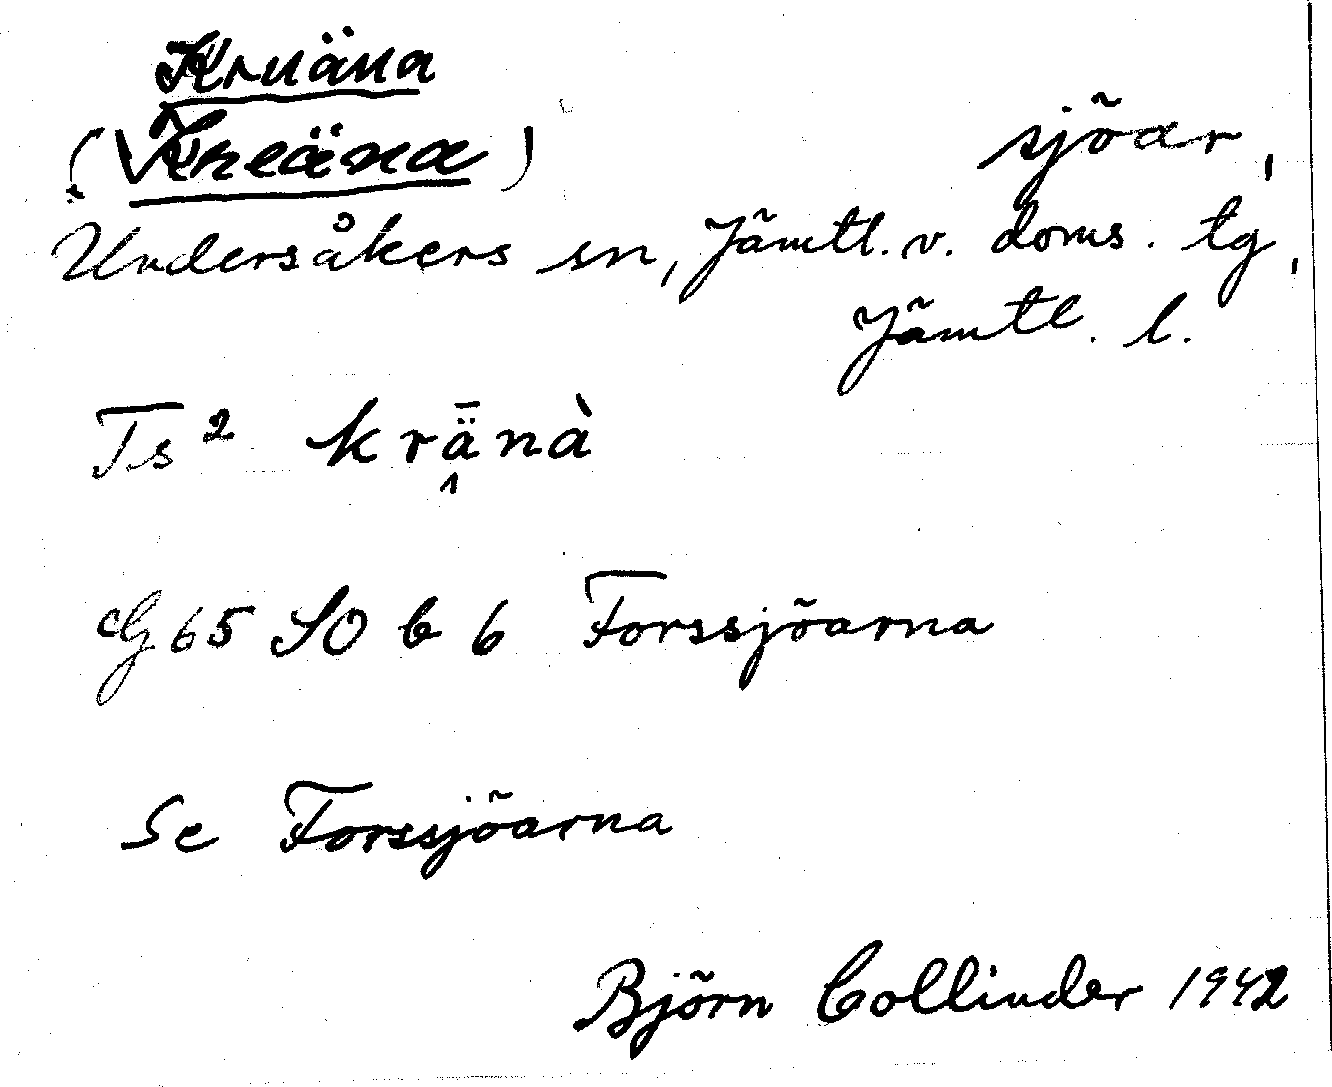 Kruäna
(Kreäna) sjöar,
Undersåkers sn, Jämtl. v. doms. tg,
Jämtl. l.
Ts² krä̂̄nà
G65 SO b 6 Forssjöarna
Se Forssjöarna
Björn Collinder 1942